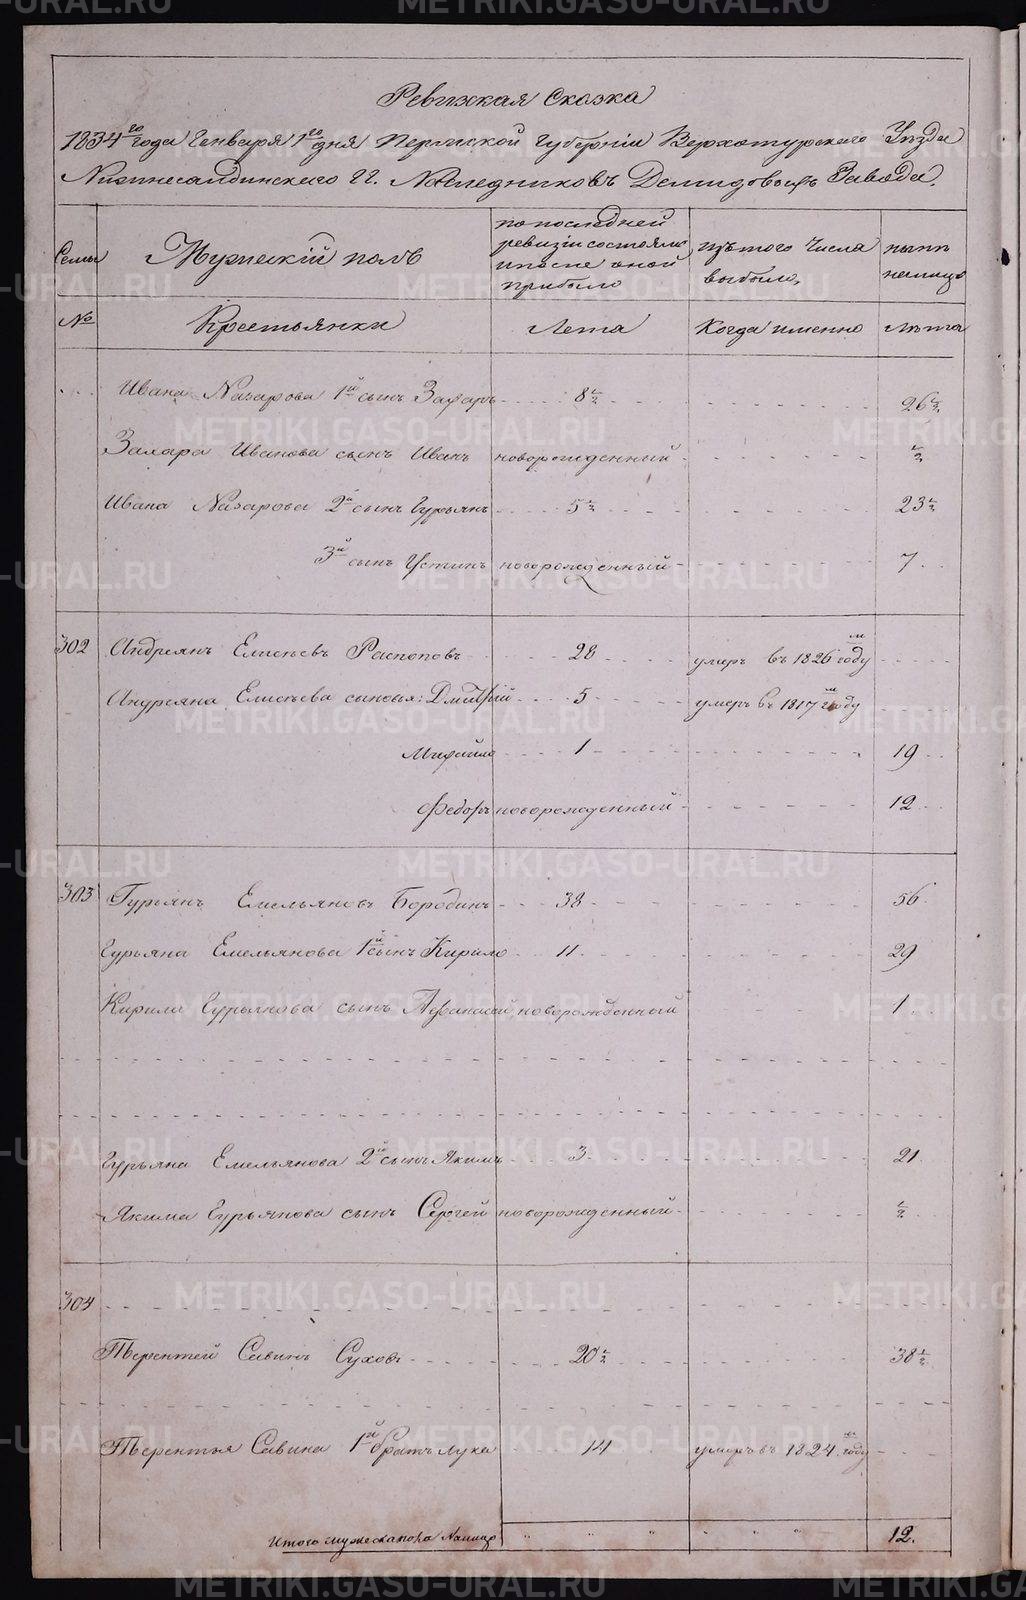 Ревизкая Сказка
1834го года Генваря 1го дня Пермской Губерніи Верхотурскаго Уѣзда
Нижнесалдинскаго ГГ. Наследниковъ Демидовыхъ Завода.
Семьи
Мужескій полъ
по последней ревизіи состояло и после оной прибыло
изъ того числа выбыло,
ныне на лицо
№
Крестьянки
Лета
Когда именно
лѣта
Ивана Назарова 1й сынъ Захаръ 8½ 26½
Захара Иванова сынъ Иванъ новорожденный ½
Ивана Назарова 2й сынъ Гурьянъ 5½ 23½
3й сынъ Устинъ новорожденный 7
302 Андреянъ Елисѣевъ Распоповъ 28 умеръ въ 1826м году
Андреяна Елисѣева сыновья: Дмитрій 5 умеръ въ 1817м году
Михайло 1 19
Федоръ новорожденный 12
303 Гурьянъ Емельяновъ Бородинъ 38 56
Гурьяна Емельянова 1й сынъ Кирило 11 29
Кирила Гурьянова сынъ Афанасей новорожденный 1
Гурьяна Емельянова 2й сынъ Якимъ 3 21
Якима Гурьянова сынъ Сергей новорожденный ½
304
Терентей Савинъ Суховъ 20½ 38½
Терентья Савина 1й братъ Лука 14 умеръ въ 1824м году
Итого мужеска пола налицо 12.
METRIKI.GASO-URAL.RU